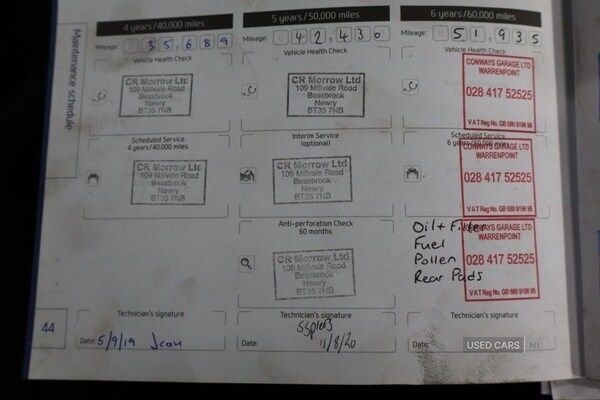 Maintenance schedule
4 years/40,000 miles
Mileage: 35,689
Vehicle Health Check
CR Morrow Ltd
109 Millvale Road
Bessbrook
Newry
BT35 7NB
Scheduled Service
4 years/40,000 miles
CR Morrow Ltd
109 Millvale Road
Bessbrook
Newry
BT35 7NB
Technician's signature
Date: 5/9/19
5 years/50,000 miles
Mileage: 42,430
Vehicle Health Check
CR Morrow Ltd
109 Millvale Road
Bessbrook
Newry
BT35 7NB
Interim Service
(optional)
CR Morrow Ltd
109 Millvale Road
Bessbrook
Newry
BT35 7NB
Anti-perforation Check
60 months
CR Morrow Ltd
109 Millvale Road
Bessbrook
Newry
BT35 7NB
Technician's signature
Date: 11/8/20
6 years/60,000 miles
Mileage: 51,935
Vehicle Health Check
CONWAYS GARAGE LTD
WARRENPOINT
028 417 52525
VAT Reg No. GB 680 9198 95
Scheduled Service
6 years/60,000 miles
CONWAYS GARAGE LTD
WARRENPOINT
028 417 52525
VAT Reg No. GB 680 9198 95
Oil + Filter
Fuel
Pollen
Rear Pads
CONWAYS GARAGE LTD
WARRENPOINT
028 417 52525
VAT Reg No. GB 680 9198 95
Technician's signature
Date:
44
USED CARS NI